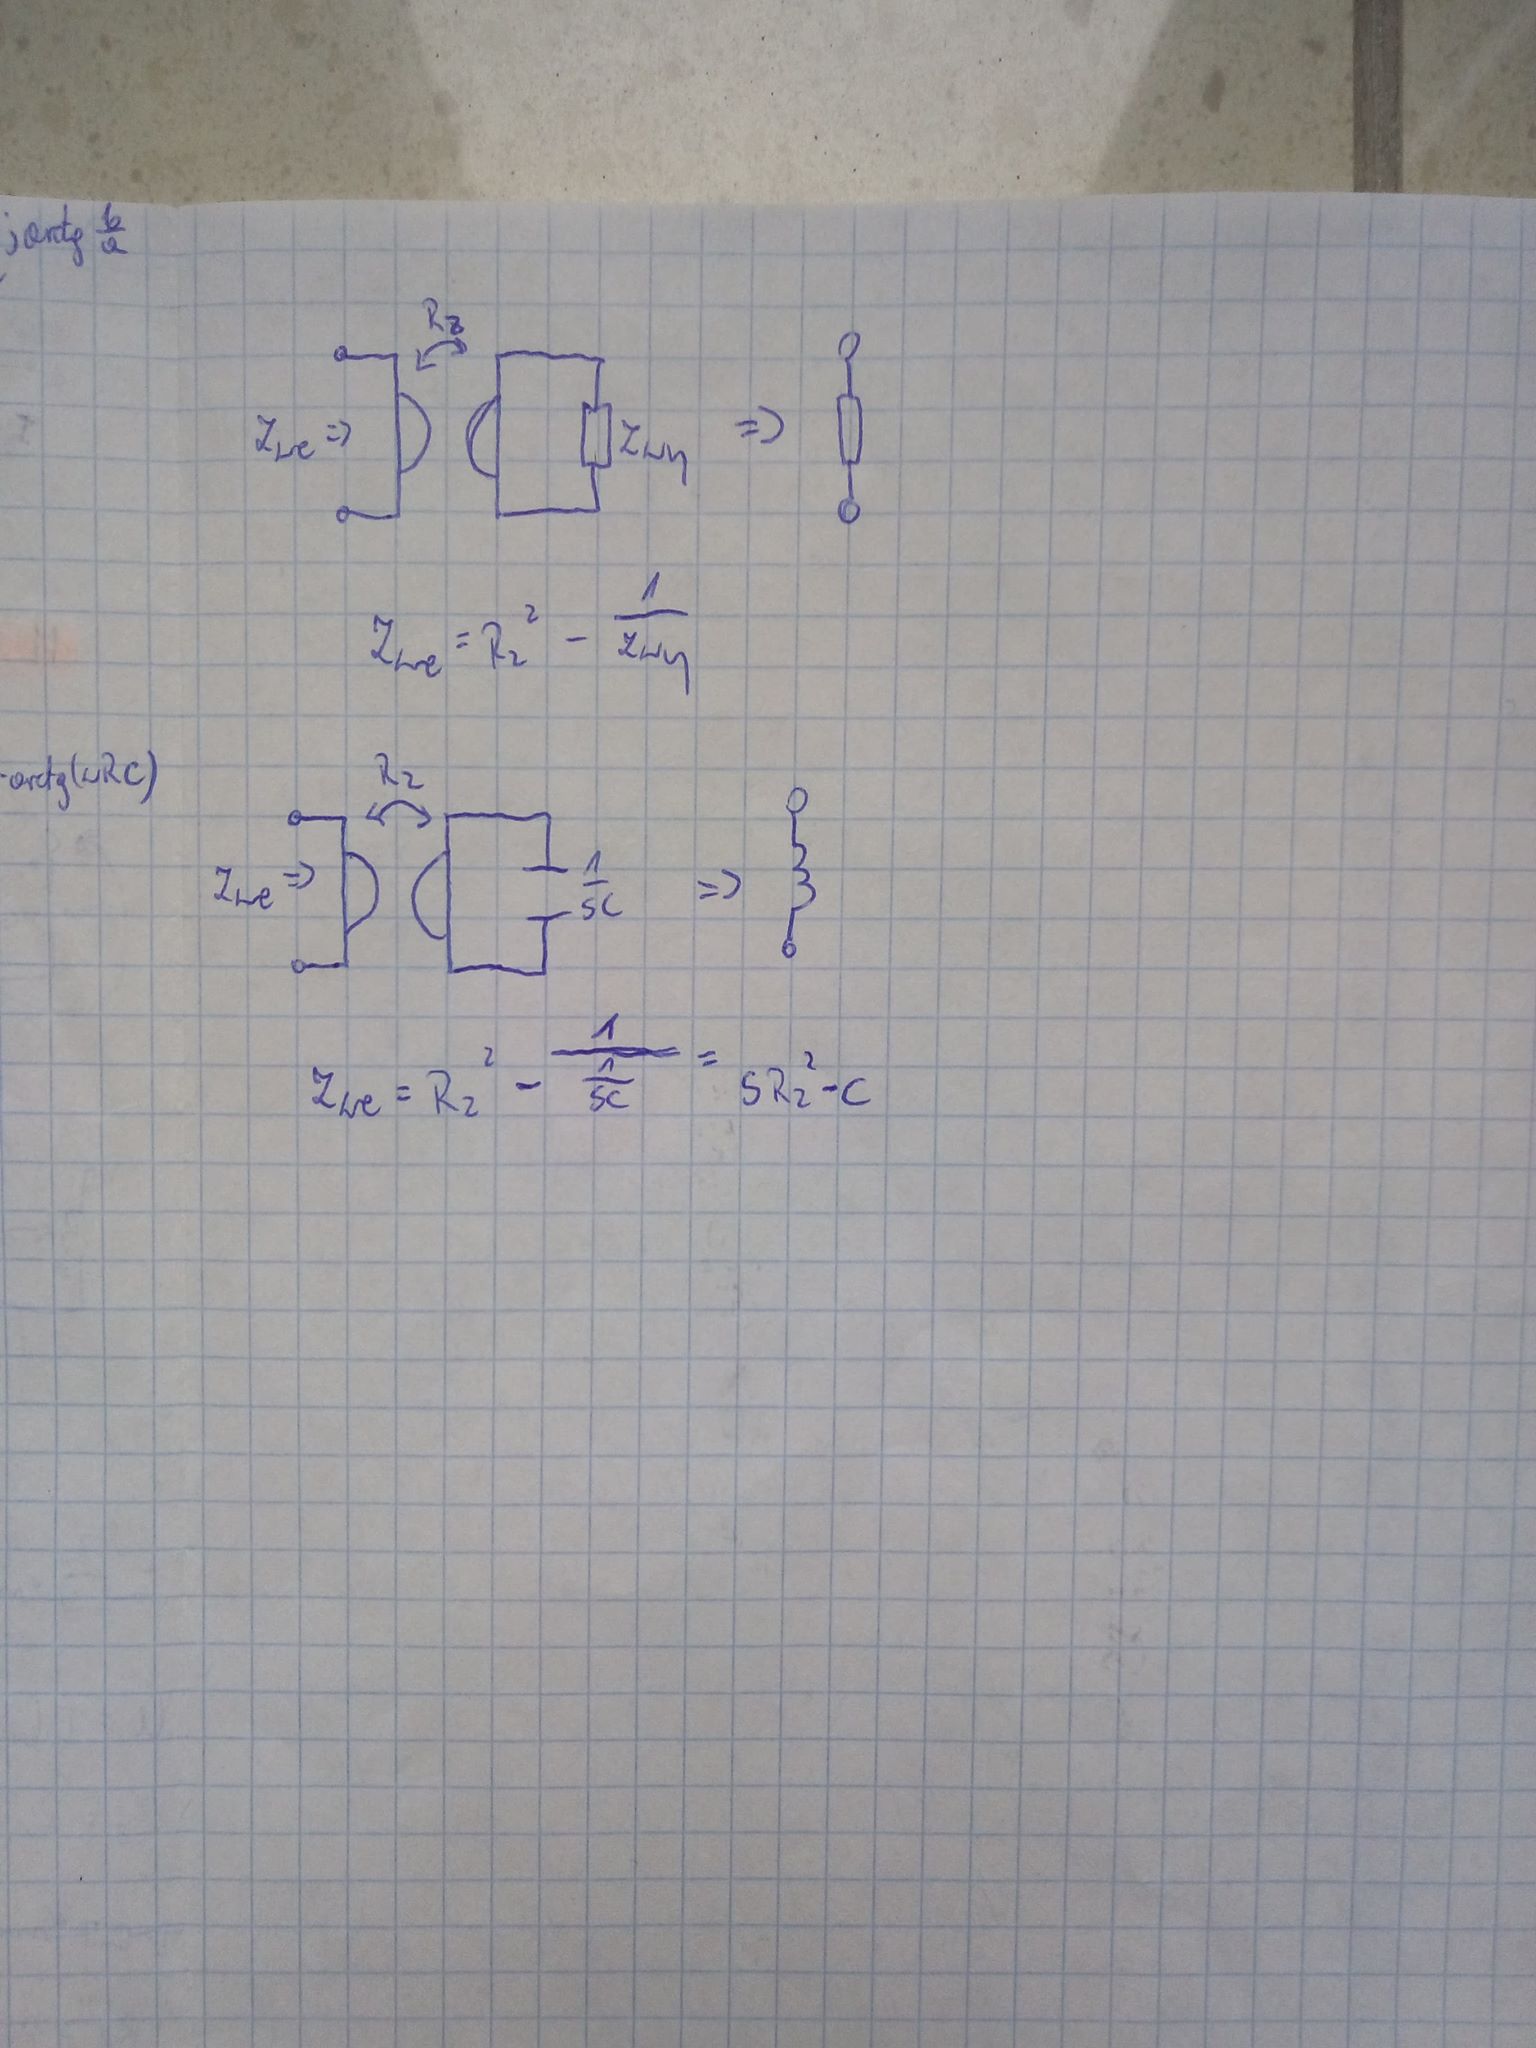 j arctg b/a
R₂
Zwe ⇒ Zwy ⇒
Zwe = R₂² - 1/Zwy
-arctg(ωRC)
R₂
Zwe ⇒ 1/SC ⇒
Zwe = R₂² - 1/(1/SC) = SR₂² - C